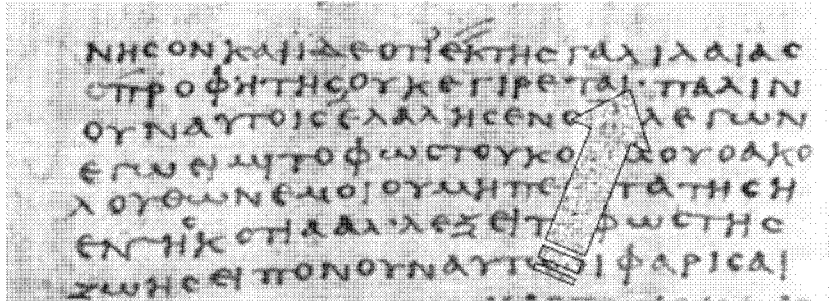 ΝΗCΟΝΚΑΙΙΔΕΟΤΙΕΚΤΗCΓΑΛΙΛΑΙΑC
ΟΠΡΟΦΗΤΗCΟΥΚΕΓΙΡΕΤΑΙ·ΠΑΛΙΝ
ΟΥΝΑΥΤΟΙCΕΛΑΛΗCΕΝΟ ΛΕΓΩΝ
ΕΓΩΕΙΜΙΤΟΦΩCΤΟΥΚΟ ΜΟΥΟΑΚΟ
ΛΟΥΘΩΝΕΜΟΙΟΥΜΗΠΕ ΤΑΤΗCΗ
ΕΝΤΗCΚΟΤΙΑΑΛΛ·ΕΞΕΙΤ ΦΩCΤΗC
ΖΩΗCΕΙΠΟΝΟΥΝΑΥΤΩ ΙΦΑΡΙCΑΙ